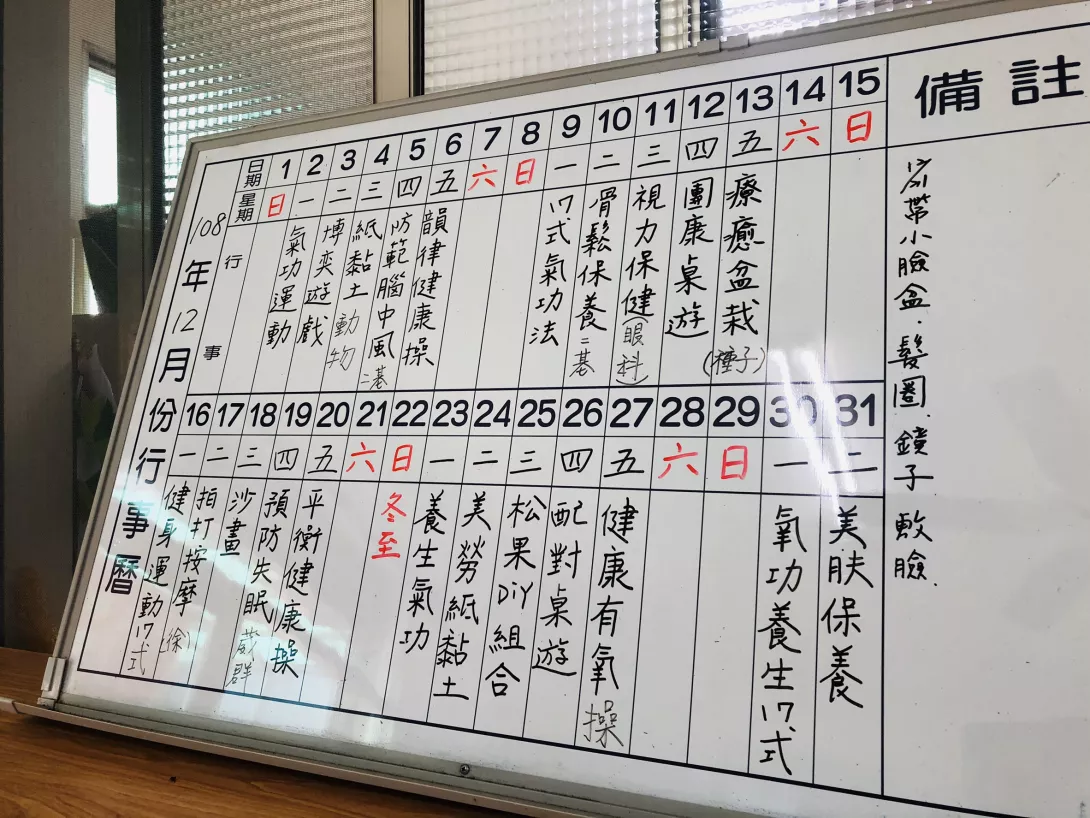 108年12月份行事曆
日期 1 2 3 4 5 6 7 8 9 10 11 12 13 14 15
星期 日 一 二 三 四 五 六 日 一 二 三 四 五 六 日
行事
氣功運動
博奕遊戲
紙黏土動物
防範腦中風二基
韻律健康操
17式氣功法
骨鬆保養二基
視力保健(眼科)
團康桌遊
療癒盆栽(種子)
16 17 18 19 20 21 22 23 24 25 26 27 28 29 30 31
一 二 三 四 五 六 日 一 二 三 四 五 六 日 一 二
健身運動17式
拍打按摩(徐)
沙畫
預防失眠葳群
平衡健康操
冬至
養生氣功
美勞紙黏土
松果DiY組合
配對桌遊
健康有氧操
氧功養生17式
美肤保養
備註
12/31帶小臉盆.髮圈.鏡子敷臉.